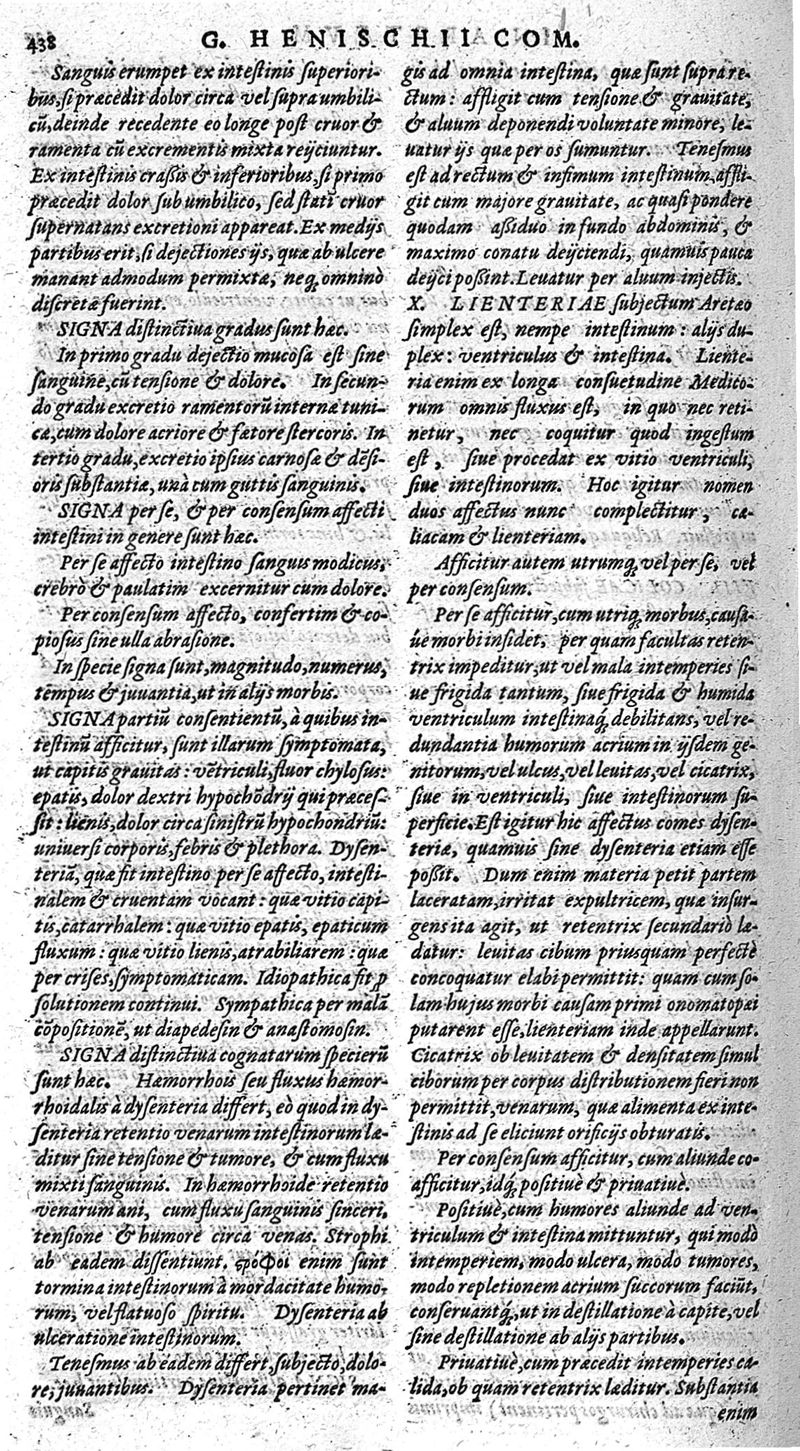 438 G. HENISCHII COM.
Sanguis erumpet ex intestinis superiori-
bus, si præcedit dolor circa vel supra umbili-
cū, deinde recedente eo longe post cruor &
ramenta cū excrementis mixta reijciuntur.
Ex intestinis crassis & inferioribus, si primo
præcedit dolor sub umbilico, sed statī cruor
supernatans excretioni appareat. Ex medijs
partibus erit, si dejectiones ijs, quæ ab ulcere
manant admodum permixtæ, neq; omninò
discretæ fuerint.
SIGNA distinctiua gradus sunt hæc.
In primo gradu dejectio mucosa est sine
sanguine, cū tensione & dolore. In secun-
do gradu excretio ramentorū internæ tuni-
cæ, cum dolore acriore & fœtore stercoris. In
tertio gradu, excretio ipsius carnosæ & dēsi-
oris substantiæ, unà cum guttis sanguinis.
SIGNA per se, & per consensum affecti
intestini in genere sunt hæc.
Per se affecto intestino sanguis modicus,
crebrò & paulatim excernitur cum dolore.
Per consensum affecto, confertim & co-
piosus sine ulla abrasione.
In specie signa sunt, magnitudo, numerus,
tēmpus & juuantia, ut in alijs morbis.
SIGNA partiū consentientū, à quibus in-
testinū afficitur, sunt illarum symptomata,
ut capitis grauitas: vētriculi, fluor chylosus:
epatis, dolor dextri hypochōdrij qui præces-
sit: lienis, dolor circa sinistrū hypochondriū:
uniuersi corporis, febris & plethora. Dysen-
teriā, quæ fit intestino per se affecto, intesti-
nalem & cruentam vocant: quæ vitio capi-
tis, catarrhalem: quæ vitio epatis, epaticum
fluxum: quæ vitio lienis, atrabiliarem: quæ
per crises, symptomaticam. Idiopathica fit ꝑ
solutionem continui. Sympathica per malā
cōpositionē, ut diapedesin & anastomosin.
SIGNA distinctiua cognatarum specierū
sunt hæc. Hæmorrhois seu fluxus hæmor-
rhoidalis à dysenteria differt, eò quod in dy-
senteria retentio venarum intestinorum læ-
ditur sine tensione & tumore, & cum fluxu
mixti sanguinis. In hæmorrhoide retentio
venarum ani, cum fluxu sanguinis sinceri,
tensione & humore circa venas. Strophi
ab eadem dissentiunt. ςρόφοι enim sunt
tormina intestinorum à mordacitate humo-
rum, vel flatuoso spiritu. Dysenteria ab
ulceratione intestinorum.
Tenesmus ab eadem differt, subjecto, dolo-
re, juuantibus. Dysenteria pertinet ma-
gis ad omnia intestina, quæ sunt supra re-
ctum: affligit cum tensione & grauitate,
& aluum deponendi voluntate minore, le-
uatur ijs quæ per os sumuntur. Tenesmus
est ad rectum & infimum intestinum, affli-
git cum majore grauitate, ac quasi pondere
quodam aßiduo in fundo abdominis, &
maximo conatu deijciendi, quamuis pauca
deijci poßint. Leuatur per aluum injectis.
X. LIENTERIAE subjectum Aretæo
simplex est, nempe intestinum: alijs du-
plex: ventriculus & intestina. Liente-
ria enim ex longa consuetudine Medico-
rum omnis fluxus est, in quo nec reti-
netur, nec coquitur quod ingestum
est, siue procedat ex vitio ventriculi,
siue intestinorum. Hoc igitur nomen
duos affectus nunc complectitur, cœ-
liacam & lienteriam.
Afficitur autem utrumq; vel per se, vel
per consensum.
Per se afficitur, cum utriq; morbus, causa-
úe morbi insidet, per quam facultas reten-
trix impeditur, ut vel mala intemperies si-
ue frigida tantum, siue frigida & humida
ventriculum intestinaq; debilitans, vel re-
dundantia humorum acrium in ijsdem ge-
nitorum, vel ulcus, vel leuitas, vel cicatrix,
siue in ventriculi, siue intestinorum su-
perficie. Est igitur hic affectus comes dysen-
teriæ, quamuis sine dysenteria etiam esse
poßit. Dum enim materia petit partem
laceratam, irritat expultricem, quæ insur-
gens ita agit, ut retentrix secundariò læ-
datur: leuitas cibum priusquam perfectè
concoquatur elabi permittit: quam cum so-
lam hujus morbi causam primi onomatopæi
putarent esse, lienteriam inde appellarunt.
Cicatrix ob leuitatem & densitatem simul
ciborum per corpus distributionem fieri non
permittit, venarum, quæ alimenta ex inte-
stinis ad se eliciunt orificijs obturatis.
Per consensum afficitur, cum aliunde co-
afficitur, idq; positiuè & priuatiuè.
Positiuè, cum humores aliunde ad ven-
triculum & intestina mittuntur, qui modò
intemperiem, modo ulcera, modo tumores,
modo repletionem acrium succorum faciūt,
conseruantq;, ut in destillatione à capite, vel
sine destillatione ab alijs partibus.
Priuatiuè, cum præcedit intemperies ca-
lida, ob quam retentrix læditur. Substantia
enim